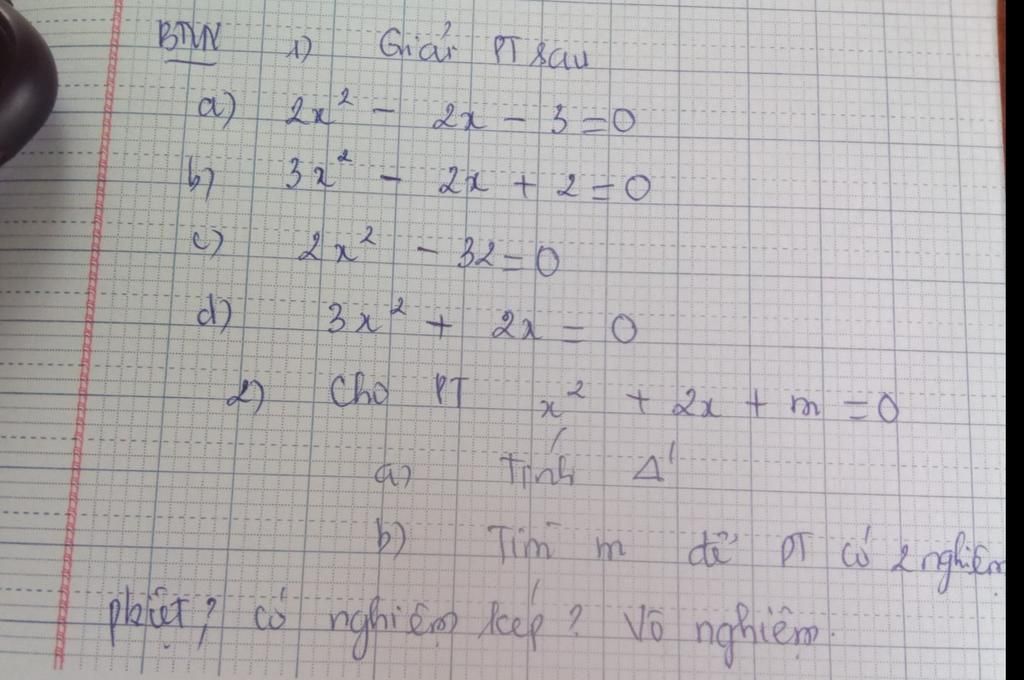 BTVN 1) Giải PT sau
a) 2x² - 2x - 3 = 0
b) 3x² - 2x + 2 = 0
c) 2x² - 32 = 0
d) 3x² + 2x = 0
2) Cho PT x² + 2x + m = 0
a) Tính Δ'
b) Tìm m để PT có 2 nghiệm
pbiệt? có nghiệm kép? Vô nghiệm.